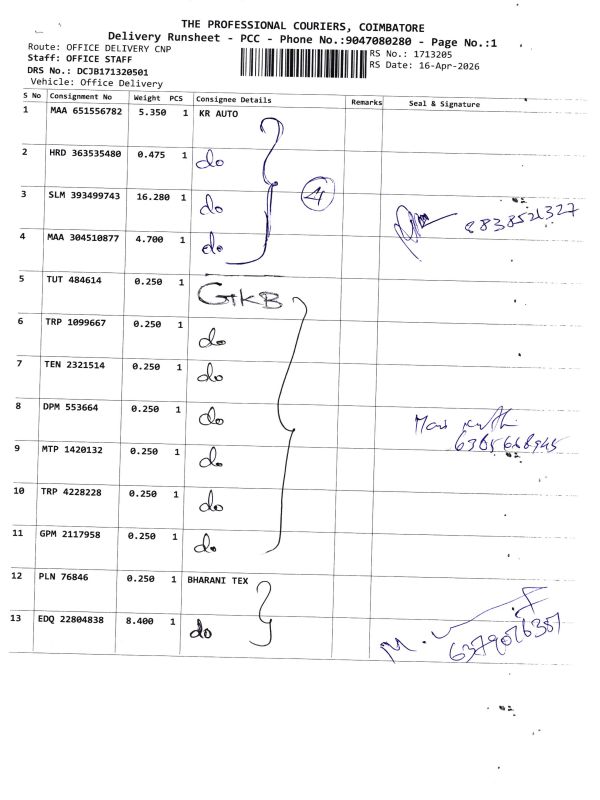 THE PROFESSIONAL COURIERS, COIMBATORE
Delivery Runsheet - PCC - Phone No.:9047080280 - Page No.:1
Route: OFFICE DELIVERY CNP
RS No.: 1713205
Staff: OFFICE STAFF
RS Date: 16-Apr-2026
DRS No.: DCJB171320501
Vehicle: Office Delivery
S No Consignment No Weight PCS Consignee Details Remarks Seal & Signature
1 MAA 651556782 5.350 1 KR AUTO
2 HRD 363535480 0.475 1 do
3 SLM 393499743 16.280 1 do 4 8838521327
4 MAA 304510877 4.700 1 do
5 TUT 484614 0.250 1 GKB
6 TRP 1099667 0.250 1 do
7 TEN 2321514 0.250 1 do
8 DPM 553664 0.250 1 do
9 MTP 1420132 0.250 1 do
10 TRP 4228228 0.250 1 do
11 GPM 2117958 0.250 1 do
12 PLN 76846 0.250 1 BHARANI TEX
13 EDQ 22804838 8.400 1 do M.